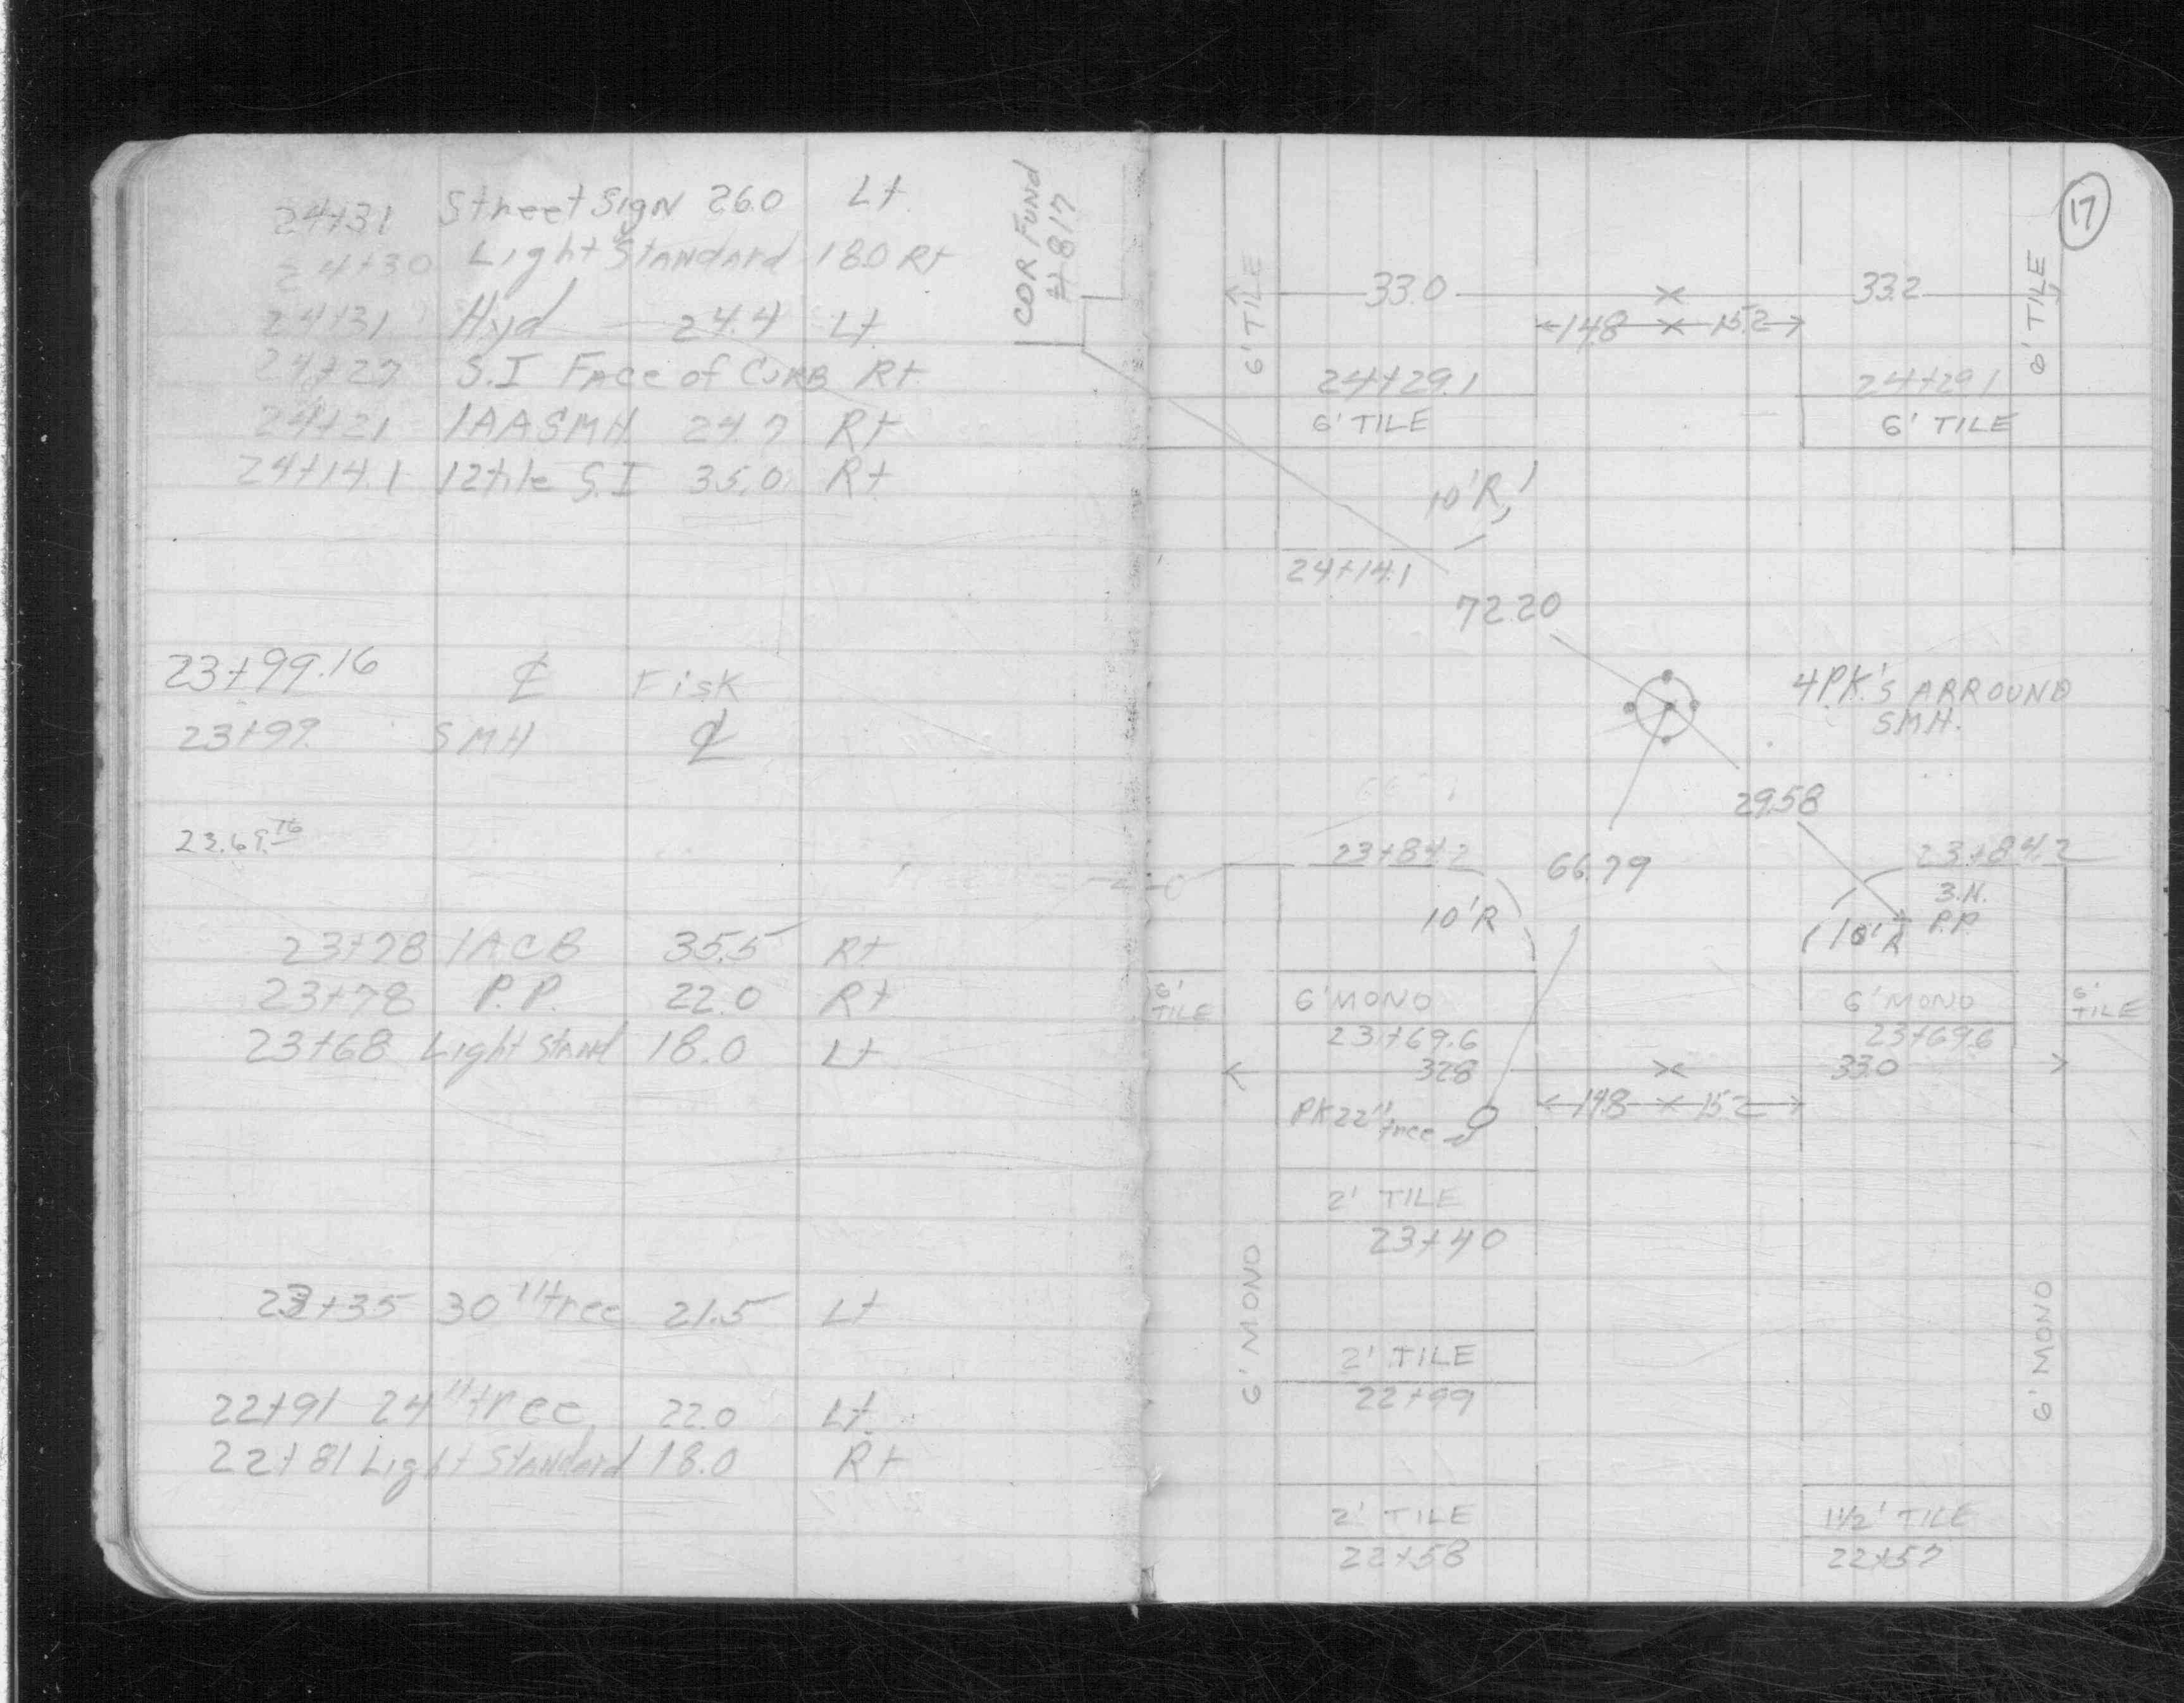 24+31 Street Sign 26.0 Lt.
24+30 Light Standard 18.0 Rt
24+31 Hyd 24.4 Lt.
24+27 S.I Face of Curb Rt
24+21 1AASMH 24.7 Rt
24+14.1 12tile S.I 35.0 Rt
23+99.16 ℄ Fisk
23+97 SMH ℄
23.69.76
23+78 1ACB 35.5 Rt
23+78 P.P. 22.0 Rt
23+68 Light Stand 18.0 Lt
23+35 30" tree 21.5 Lt
22+91 24" tree 22.0 Lt.
22+81 Light Standard 18.0 Rt
COR FUND
# 817
17
6' TILE
33.0 33.2
6' TILE
14.8 15.2
24+29.1 24+29.1
6' TILE 6' TILE
10'R
24+14.1
72.20
4 P.K.'S ARROUND
SMH.
29.58
23+84.2 66.79 23+84.2
3.H.
P.P
10'R 10'R
6'
TILE
6' MONO 6' MONO
6'
TILE
23+69.6 23+69.6
32.8 33.0
PK 22" tree
14.8 15.2
2' TILE
23+40
6' MONO 6' MONO
2' TILE
22+99
2' TILE 1 1/2' TILE
22+58 22+57